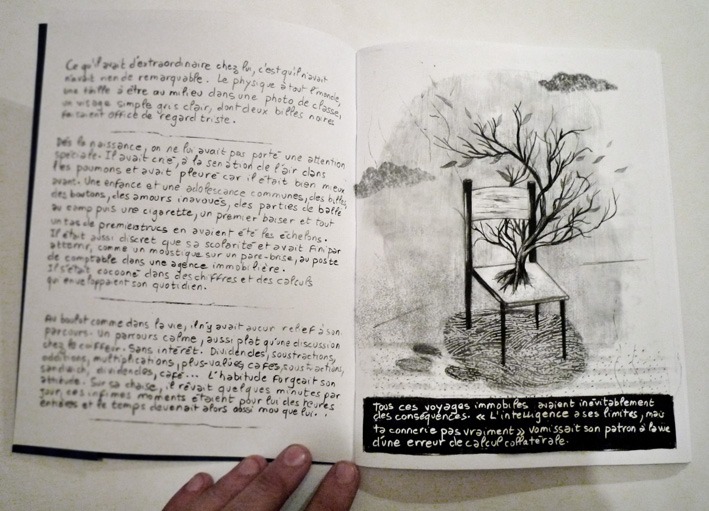 Ce qu'il avait d'extraordinaire chez lui, c'est qu'il n'avait
n'avait rien de remarquable. Le physique à tout l'monde,
une taille à être au milieu dans une photo de classe,
un visage simple gris clair, dont deux billes noires
faisaient office de regard triste.
Dès la naissance, on ne lui avait pas porté une attention
spéciale. Il avait crié, à la senation de l'air dans
les poumons et avait pleuré car il était bien mieux
avant. Une enfance et une adolescance communes, des billes,
des boutons, des amours inavoués, des parties de balle
au camp puis une cigarette, un premier baiser et tout
un tas de premiers trucs en avaient été les échelons.
Il était aussi discret que sa scolarité et avait fini par
atterrir, comme un moustique sur un pare-brise, au poste
de comptable dans une agence immobilière.
Il s'était cocooné dans des chiffres et des calculs
qui enveloppaient son quotidien.
Au boulot comme dans la vie, il n'y avait aucun relief à son
parcours. Un parcours calme, aussi plat qu'une discussion
chez le coiffeur. Sans intérêt. Dividendes, soustractions,
additions, multiplications, plus-values, cafés, soustractions,
sandwich, dividendes, café... L'habitude forgeait son
attitude. Sur sa chaise, il rêvait quelques minutes par
jour, ces infimes moments étaient pour lui des heures
entières et le temps devenait alors aussi mou que lui.
Tous ces voyages immobiles avaient inévitablement
des conséquences. « L'intelligence a ses limites, mais
ta connerie pas vraiment » vomissait son patron à la vue
d'une erreur de calcul collatérale.